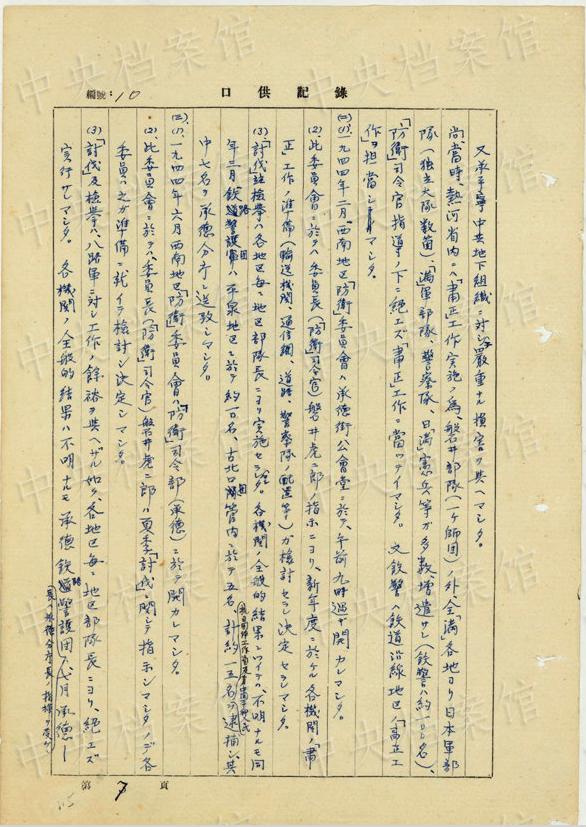 口供記錄
編號:10
又承平寧中共地下組織ニ対シ嚴重ナル損害ヲ與ヘマシタ。
尚當時、熱河省内ニハ「肅正」工作実施ノ為、岩井部隊(一ケ師団)ノ外、全「満」各地ヨリ日本軍部
隊(独立大隊数箇)、「満」軍部隊、警察隊、日「満」憲兵等ガ多数増遣サレ(鉄警ハ約一〇〇名)、
「防衛」司令官指導ノ下ニ絶エズ「肅正」工作ニ當ッテイマシタ。又鉄警ハ鉄道沿線地区ノ「肅正工
作」ヲ担當シマシタ。
(二)(1)、一九四四年二月「西南地区「防衛」委員會ハ承德街公會堂ニ於テ、午前九時過ギ開カレマシタ。
(2)、此委員會ニ於テハ委員長(「防衛」司令官)岩井虎二郎ノ指示ニヨリ、新年度ニ於ケル各機関ノ「肅
正」工作ノ準備(輸送機関、通信網、道路、警察隊ノ配置等)ガ検討セラレ決定セラレマシタ。
(3)「討伐」並検挙ハ各地区毎ニ地区部隊長ニヨリ実施セラレ、各機関ノ全般的結果ニツイテハ不明ナルモ同
年三月鉄路警護團ハ平泉地区ニ於テ約一〇名、古北口團管内ニ於テ五名、計約一五名ヲ逮捕シ、其
中七名ヲ承德分庁ニ送致シマシタ。
(三)(1)、一九四四年六月西南地区「防衛」委員會ハ「防衛」司令部(承德)ニ於テ開カレマシタ。
(2)、此委員會ニ於テハ、委員長(「防衛」司令官)岩井虎二郎ハ夏季「討伐」ニ関シテ指示シマシタノデ各
委員ハ之ガ準備ニ就イテ検討シ決定シマシタ。
(3)「討伐」及検挙ハ、八路軍ニ対シ工作ノ餘裕ヲ與ヘザル如ク、各地区毎ニ地区部隊長ニヨリ、絶エズ
実行サレマシタ。各機関ノ全般的結果ハ不明ナルモ承德鉄路警護團ハ七月承德—
第 7 頁
115
中央档案馆